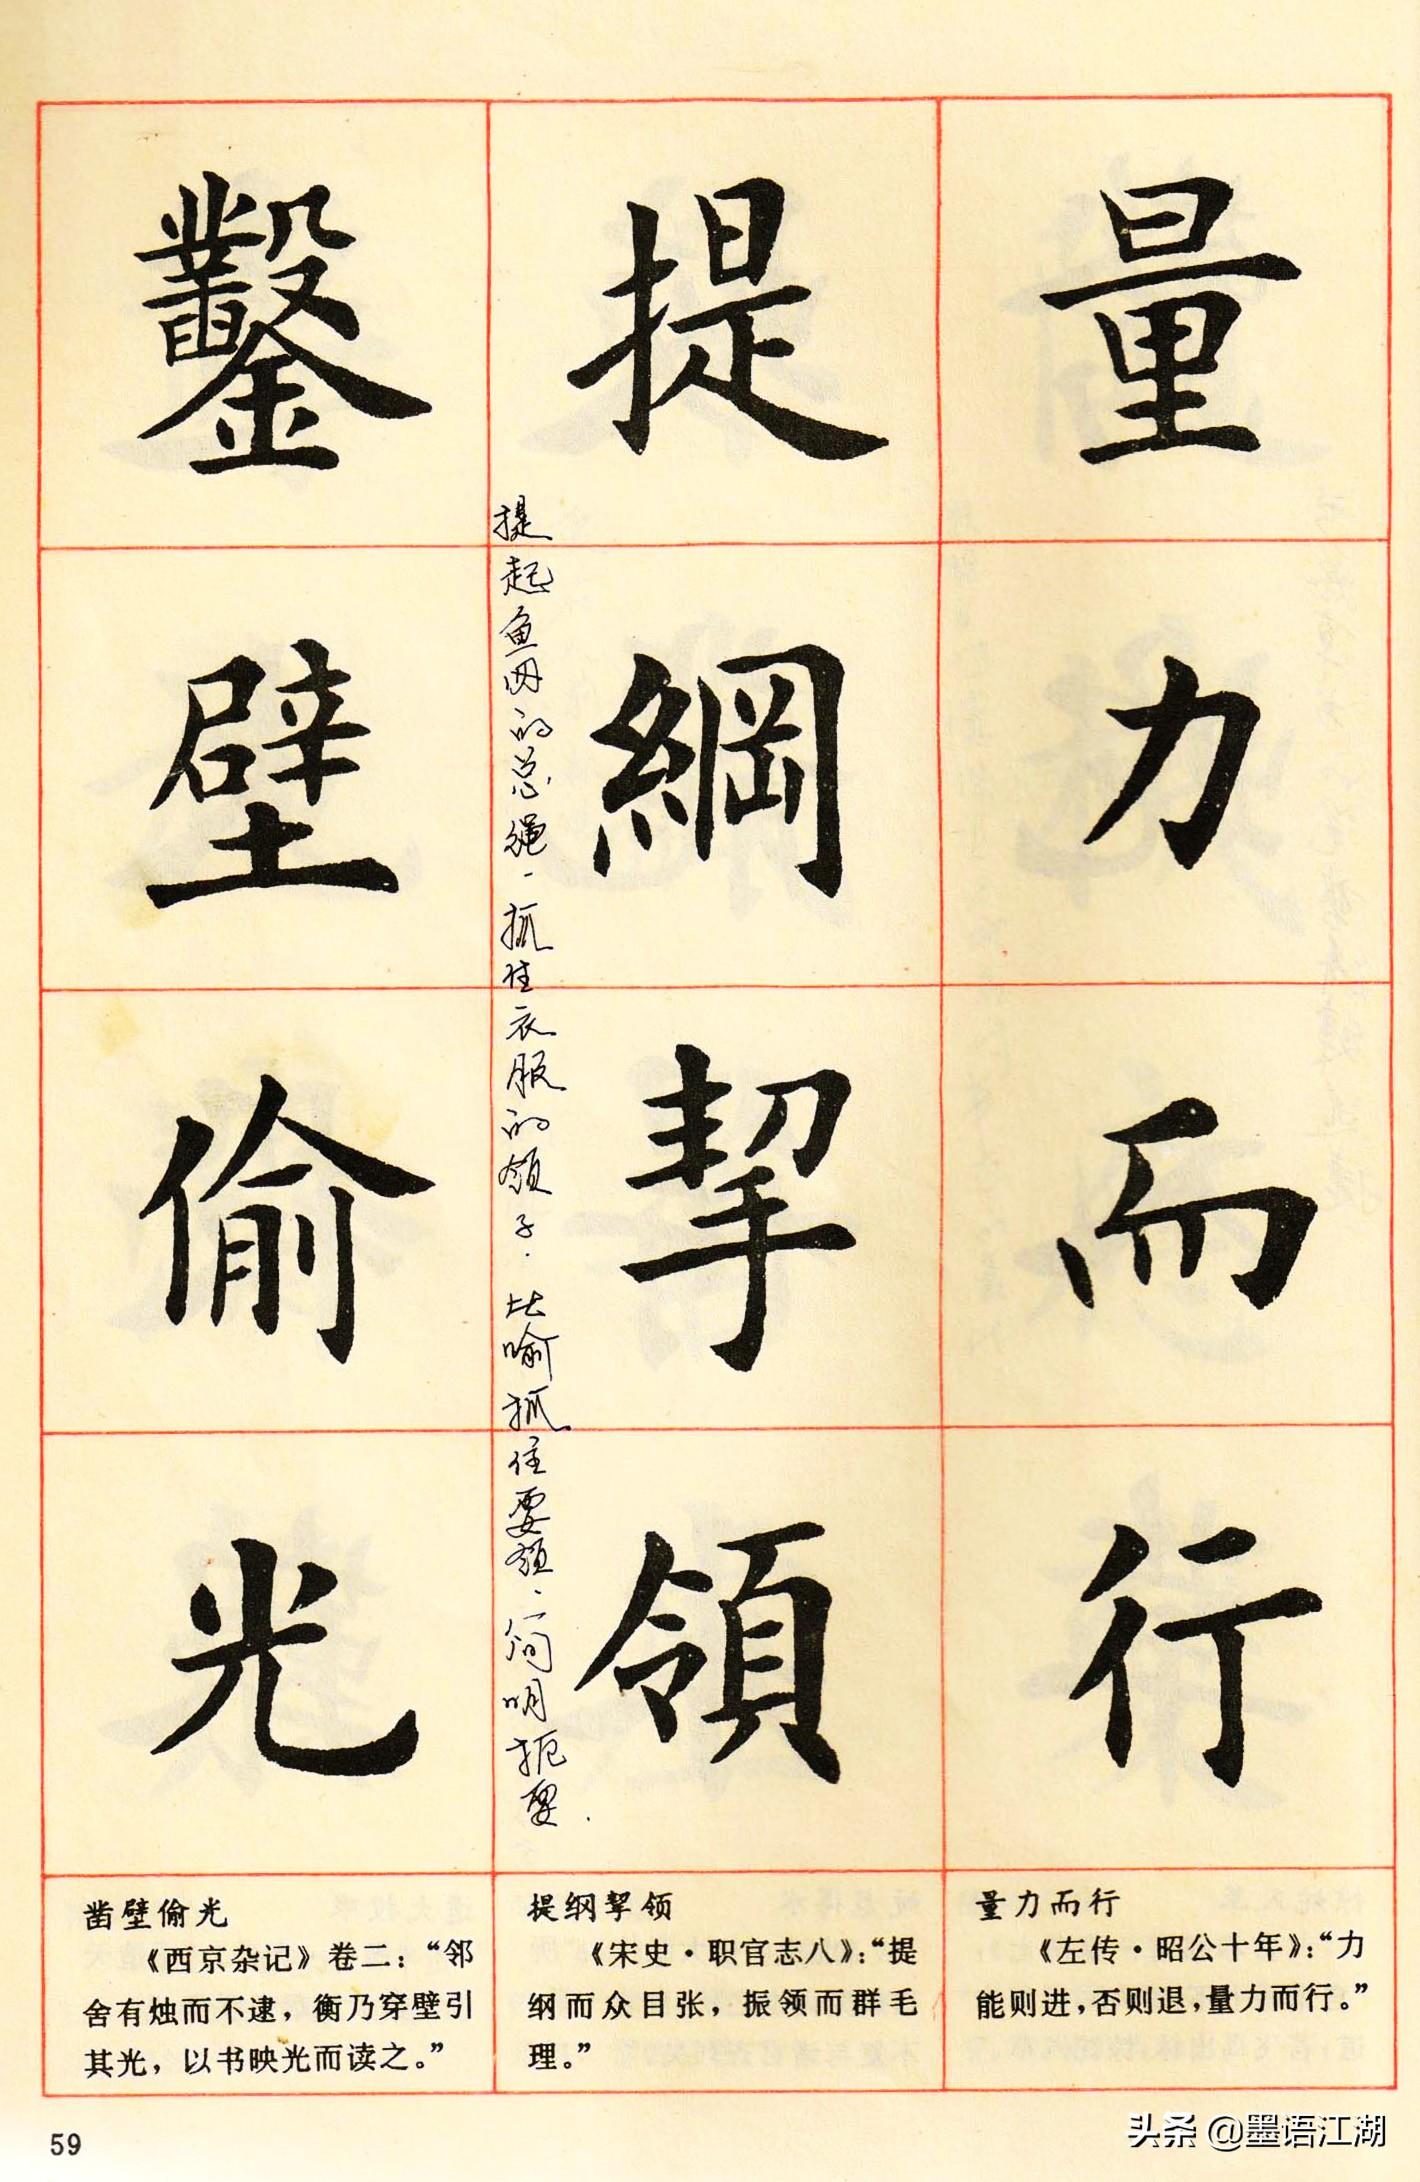 量力而行
提綱挈領
提起鱼网的总绳，抓住衣服的领子．比喻抓住要领，简明扼要．
鑿壁偷光
量力而行
《左传·昭公十年》：“力
能则进，否则退，量力而行。”
提纲挈领
《宋史·职官志八》：“提
纲而众目张，振领而群毛
理。”
凿壁偷光
《西京杂记》卷二：“邻
舍有烛而不逮，衡乃穿壁引
其光，以书映光而读之。”
59
头条 @墨语江湖